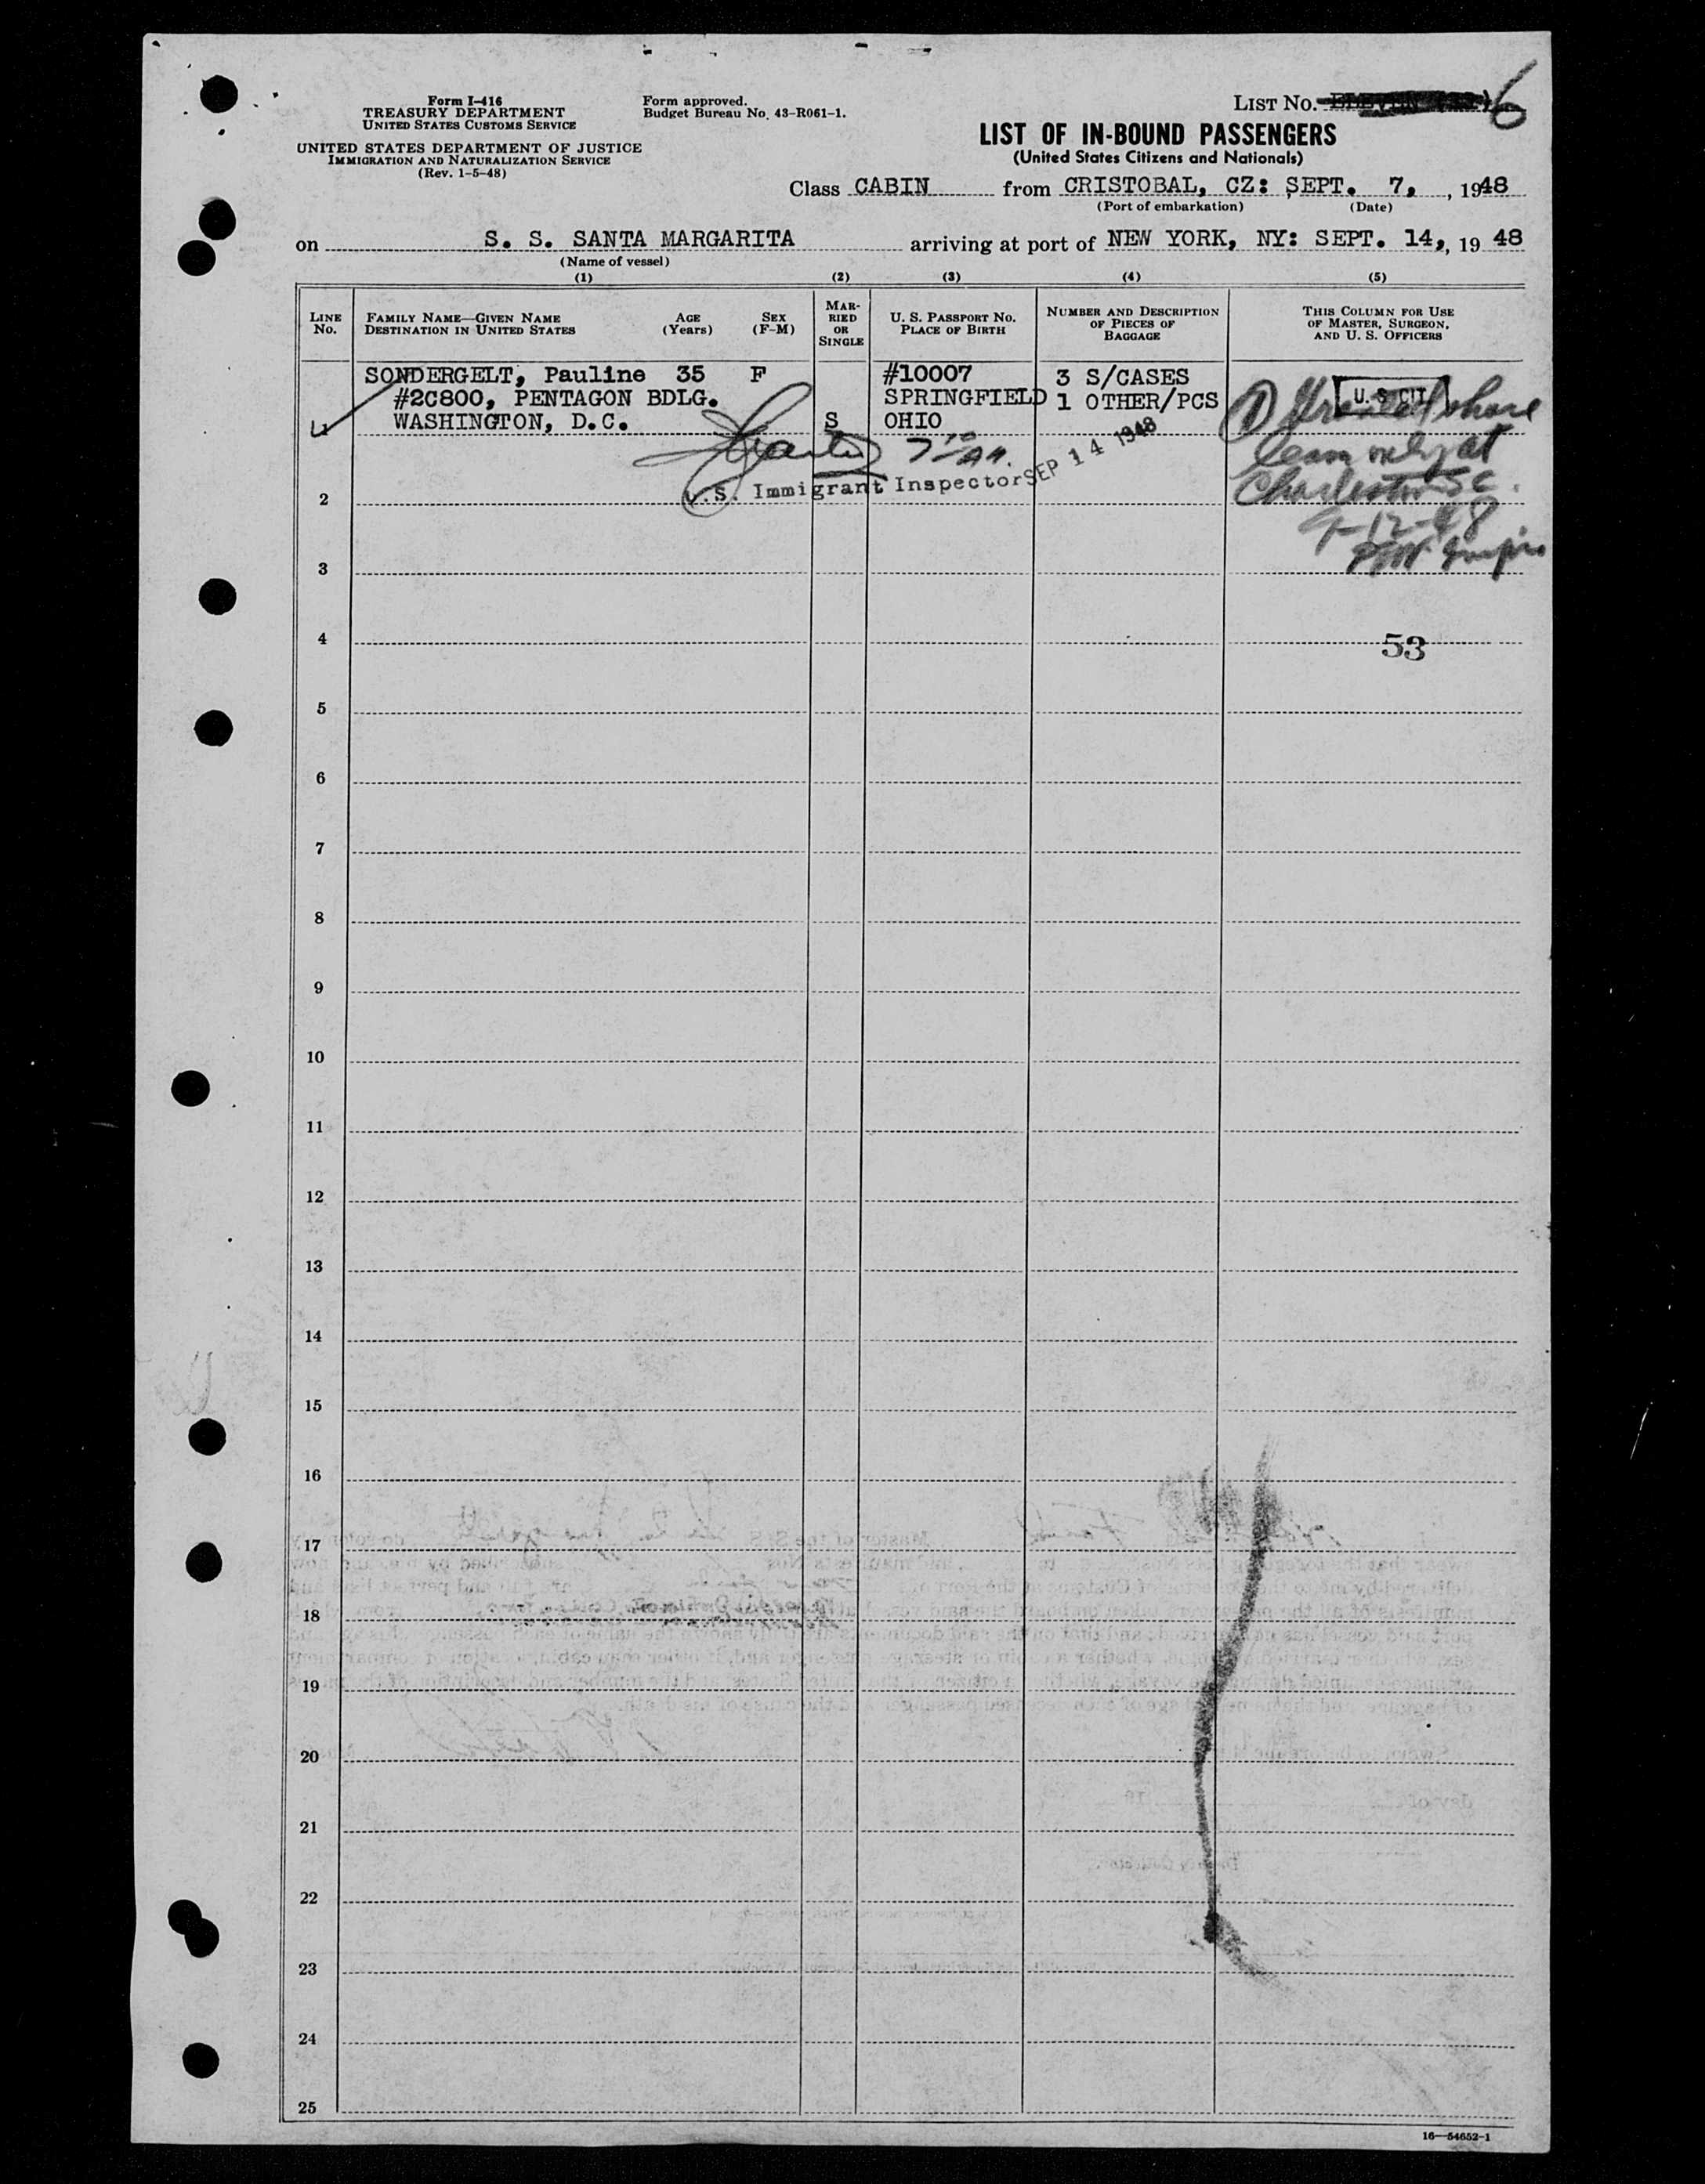 Form I-416
TREASURY DEPARTMENT
UNITED STATES CUSTOMS SERVICE
UNITED STATES DEPARTMENT OF JUSTICE
IMMIGRATION AND NATURALIZATION SERVICE
(Rev. 1-5-48)
Form approved.
Budget Bureau No. 43-R061-1.
LIST No. 6
LIST OF IN-BOUND PASSENGERS
(United States Citizens and Nationals)
Class CABIN from CRISTOBAL, CZ: SEPT. 7, , 1948
(Port of embarkation) (Date)
on S. S. SANTA MARGARITA arriving at port of NEW YORK, NY: SEPT. 14, , 19 48
(Name of vessel)
(1) (2) (3) (4) (5)
LINE No.
FAMILY NAME—GIVEN NAME
DESTINATION IN UNITED STATES
AGE
(Years)
SEX
(F-M)
MAR-
RIED
OR
SINGLE
U. S. PASSPORT No.
PLACE OF BIRTH
NUMBER AND DESCRIPTION
OF PIECES OF
BAGGAGE
THIS COLUMN FOR USE
OF MASTER, SURGEON,
AND U. S. OFFICERS
SONDERGELT, Pauline 35 F #10007 3 S/CASES
#2C800, PENTAGON BDLG. SPRINGFIELD 1 OTHER/PCS
1 WASHINGTON, D.C. S OHIO
U. S. CIT.
① Granted shore
leave only at
Charleston SC.
9-12-48
U.S. Immigrant Inspector SEP 14 1948
2
3
4
53
5
6
7
8
9
10
11
12
13
14
15
16
17
18
19
20
21
22
23
24
25
16—54652-1